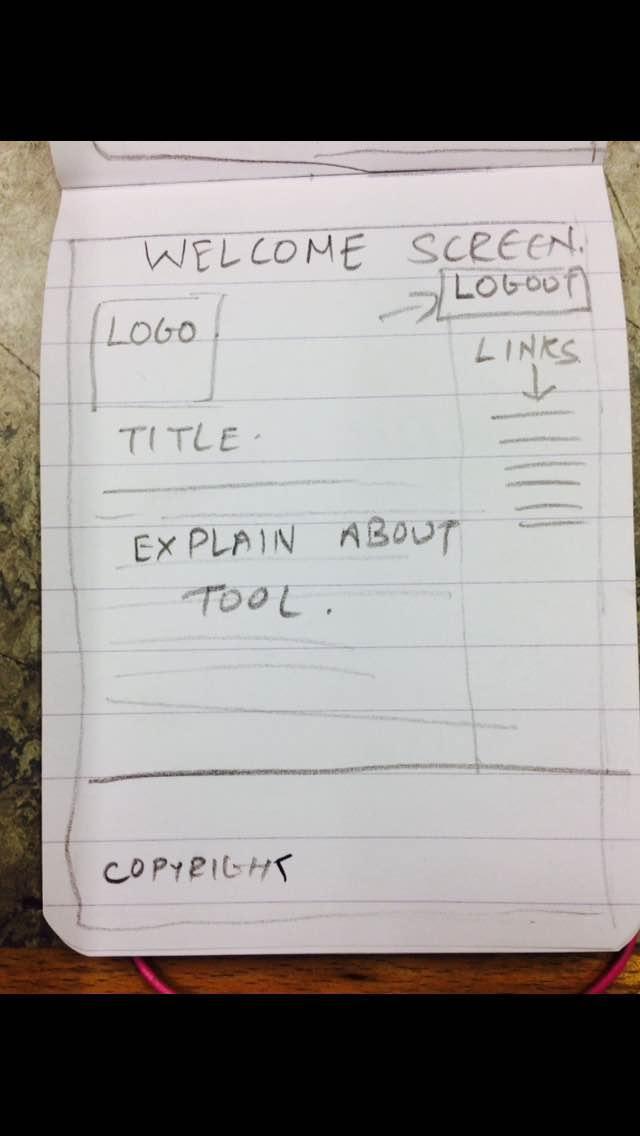 WELCOME SCREEN.
LOGOUT
LOGO
LINKS
TITLE.
EXPLAIN ABOUT
TOOL.
COPYRIGHT